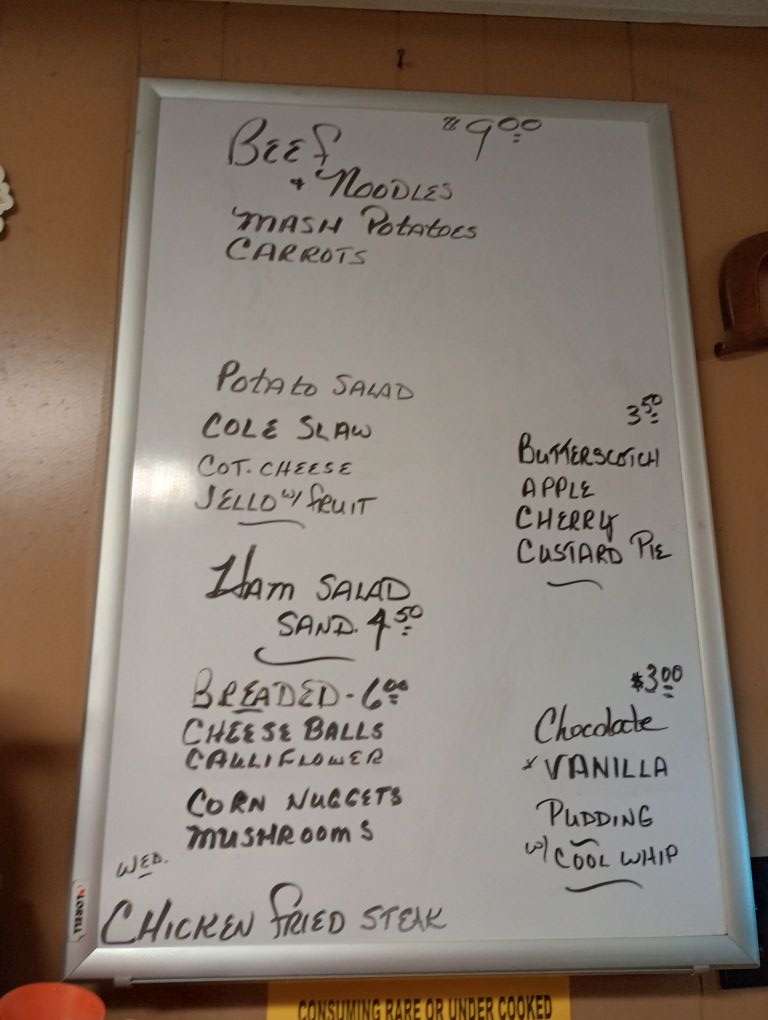 BEEF $9.00
+ NOODLES
MASH POTATOES
CARROTS
POTATO SALAD
COLE SLAW
COT. CHEESE
JELLO w/ FRUIT
HAM SALAD
SAND. 4.50
BREADED - 6.00
CHEESE BALLS
CAULIFLOWER
CORN NUGGETS
MUSHROOMS
WED.
CHICKEN FRIED STEAK
3.50
BUTTERSCOTCH
APPLE
CHERRY
CUSTARD PIE
$3.00
Chocolate
+ VANILLA
PUDDING
w/ COOL WHIP
CONSUMING RARE OR UNDER COOKED